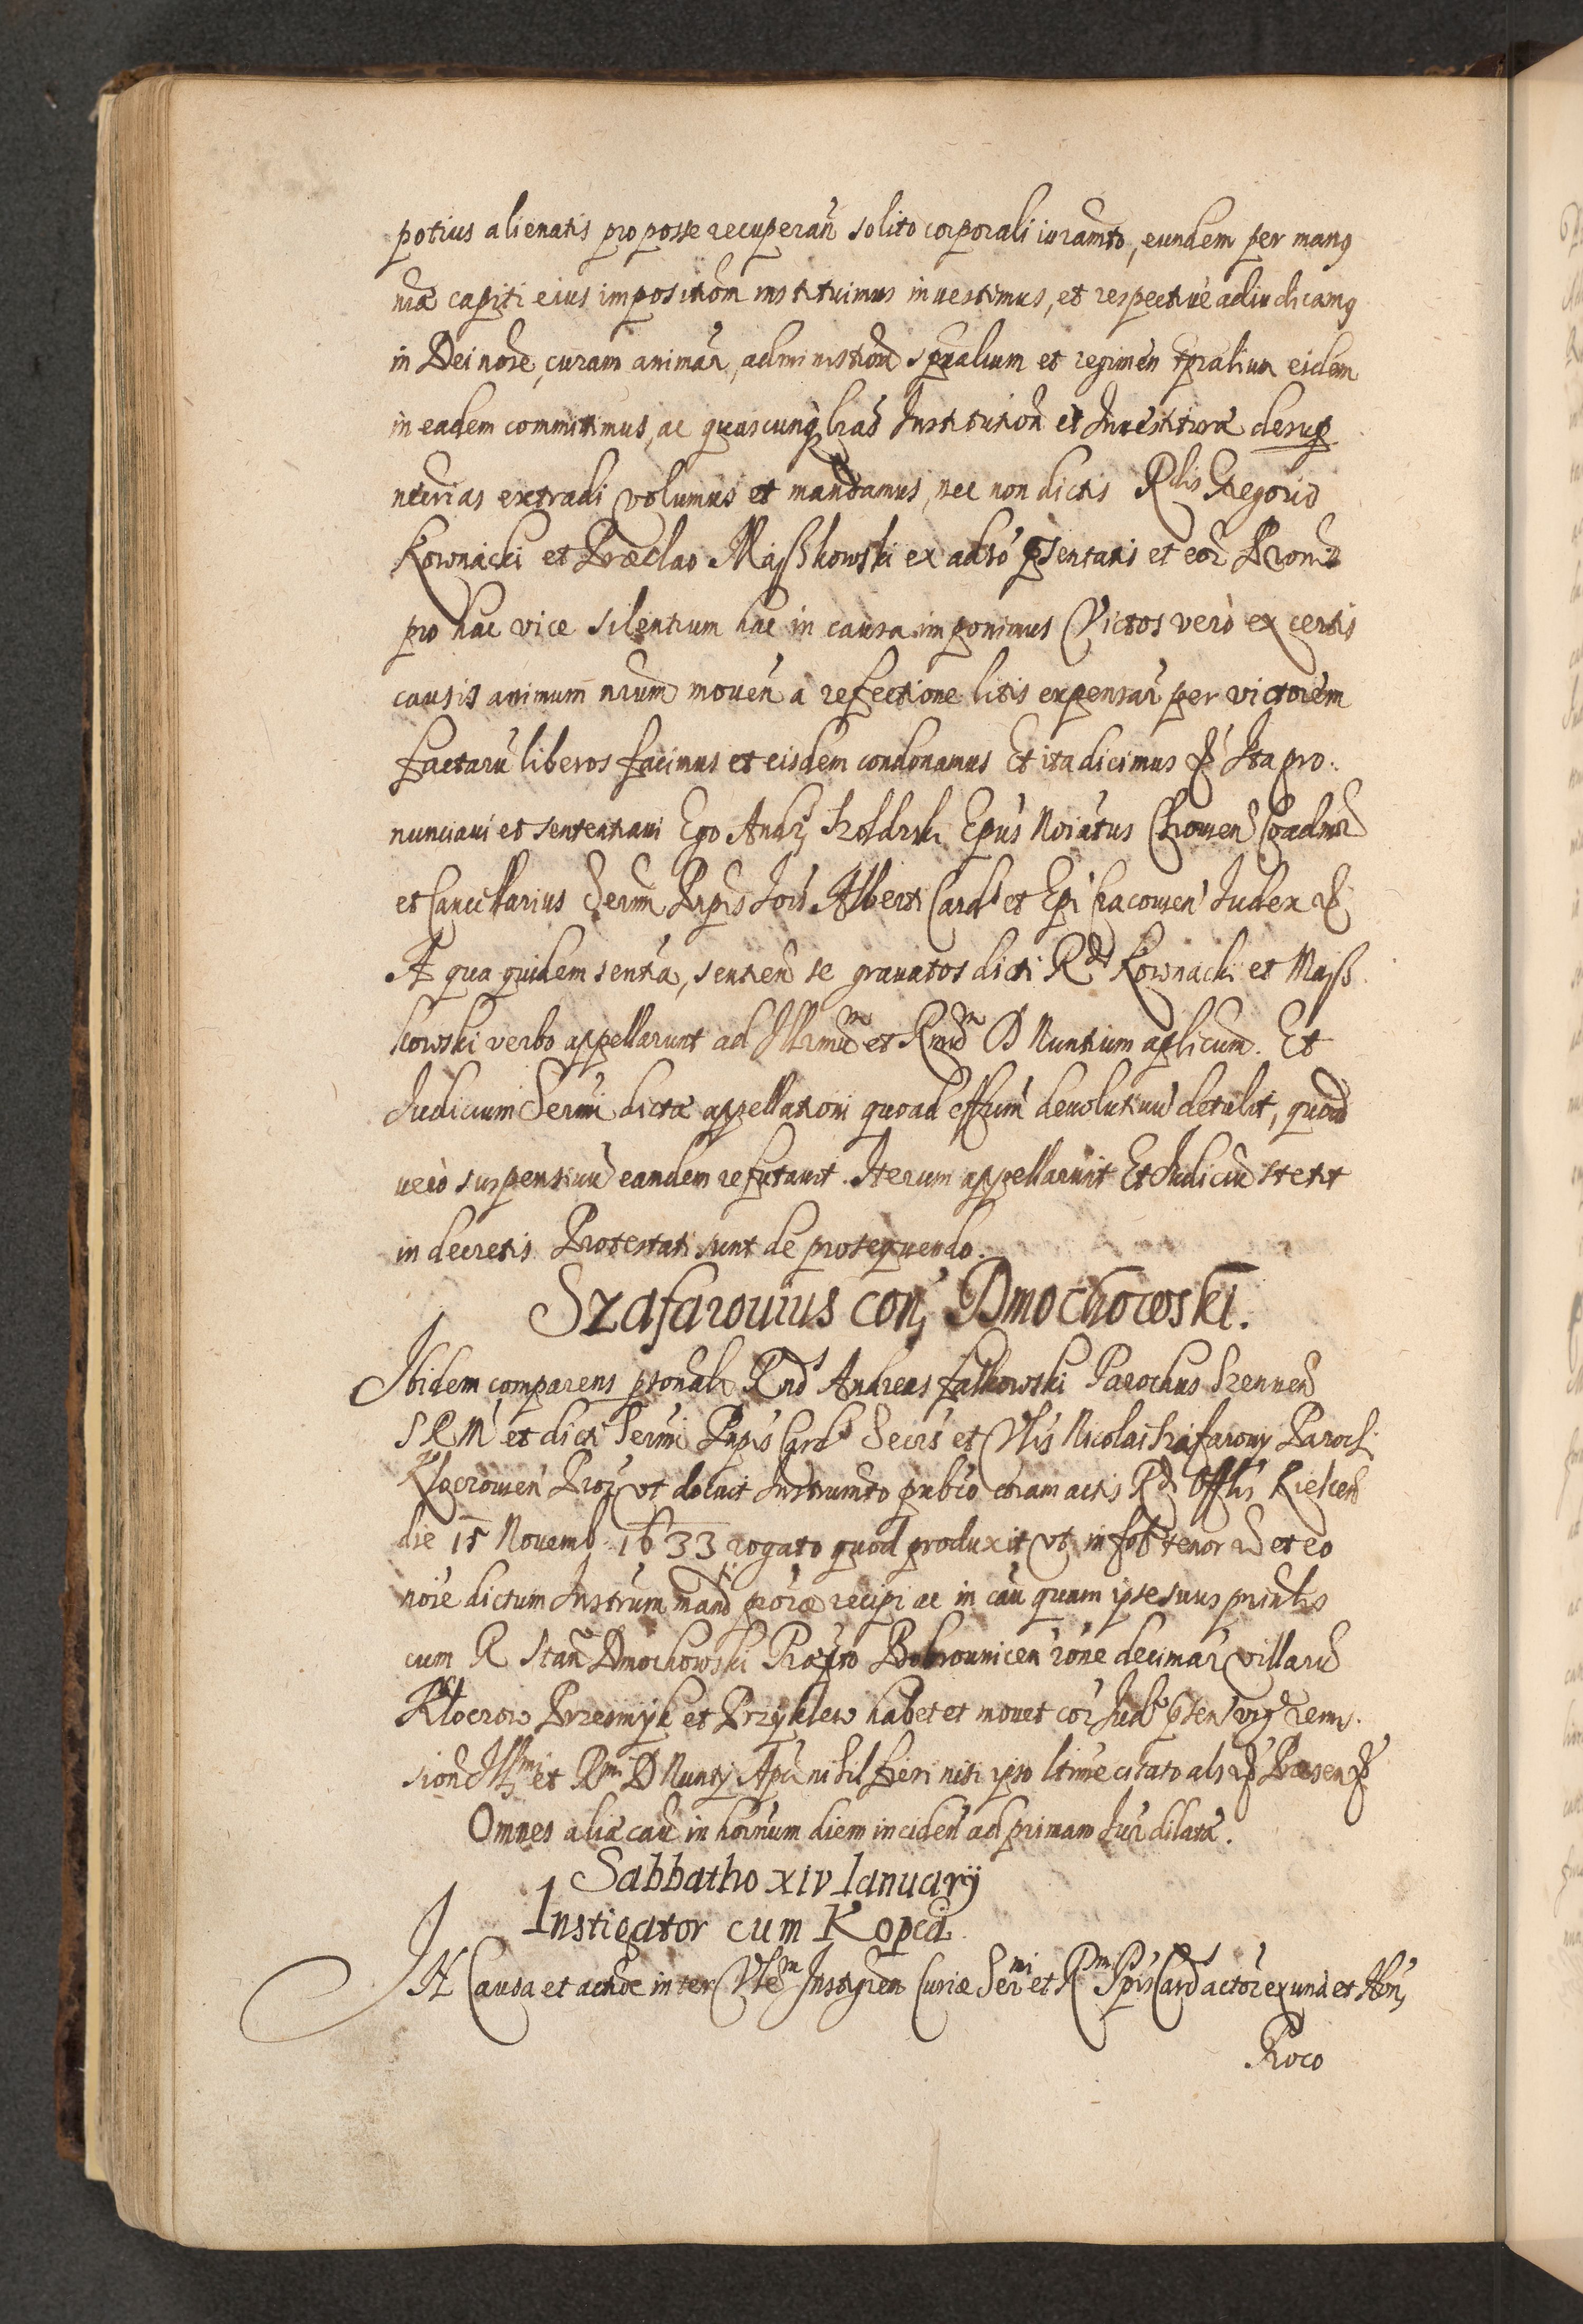 potius alienatis pro posse recuperañ solito corporali iuramto, eundem per manq
nrã capiti eius impositiom instituimus inuestimus, et respectiue adiudicamq
in Dei noie, curam animar, administrãom spũalium et regimen tpralium eidem
in eadem committimus, ac quascunq lras Institution et Inuestituræ desup
necrias extradi volumus et mandamus, nec non dictis Rdis Gregorio
Kownacki et Præclao Maißkowski ex aduo psentatis et eor Pronis
pro hac vice silentium hac in causa imponimus Victos verò ex certis
causis animum nrum mouen à refectione litis expensar per victorem
factarũ liberos facimus et eisdem condonamus Et ita dicimus &c Ita pro.
nunciaui et sententiaui Ego Andr Szoldrski Epus Noiatus Coadiur
et Cancellarius Serm Prpis Jois Alberti Cardl et Epi Cracouien Judex &c
A qua quidem sentia, sentien se grauatos dicti Rdi Kownacki et Maiß
kowski verbo appellarunt ad Illrmũ et Rmũ D Nuntium aplicum. Et
Judicium Sermi dictæ appellationi quoad effum deuolutiuũ detulit, quoad
verò suspensiuũ eandem refutauit. Iterum appellarunt Et Judiciũ stetit
in decretis Protestati sunt de prosequendo.
Szafarouius con, Dmochowski.
Ibidem comparens psonalr Rnds Andreas Falkowski Parochus
S R M et dicti Sermi Prpis Cardl Secrs et Vlis Nicolai Szafarouy Paroch.
Kłocrouien Pror vt docuit Instrumto publco coram actis Rdi Offlis Kielcen
die 15 Nouemb. 1633 rogato quod produxit vt inf tenor et eo
noie dictum Instrum mandi procræ recipi ac in cau quam ipse suus prinlis
cum R Stan Dmochowski Præpto Bobrounicen rone decimar villarũ
Kłocrow Przesmyk et Przyklew habet et mouet cor Judo psen vig remis.
sion Illmi et Rmi D Nuntij Apci nihil fieri nisi ipso ltime citato als &c Præsen &c
Omnes aliæ caũ in hornum diem inciden ad primam Jur dilatæ.
Sabbatho XIV Ianuarÿ
Instigator cum Kopeá
IN Causa et actiõe inter Vlem Instigren Curiæ Sermi et Rmi Ppis Cardl actor ex una et Hon,
Roco